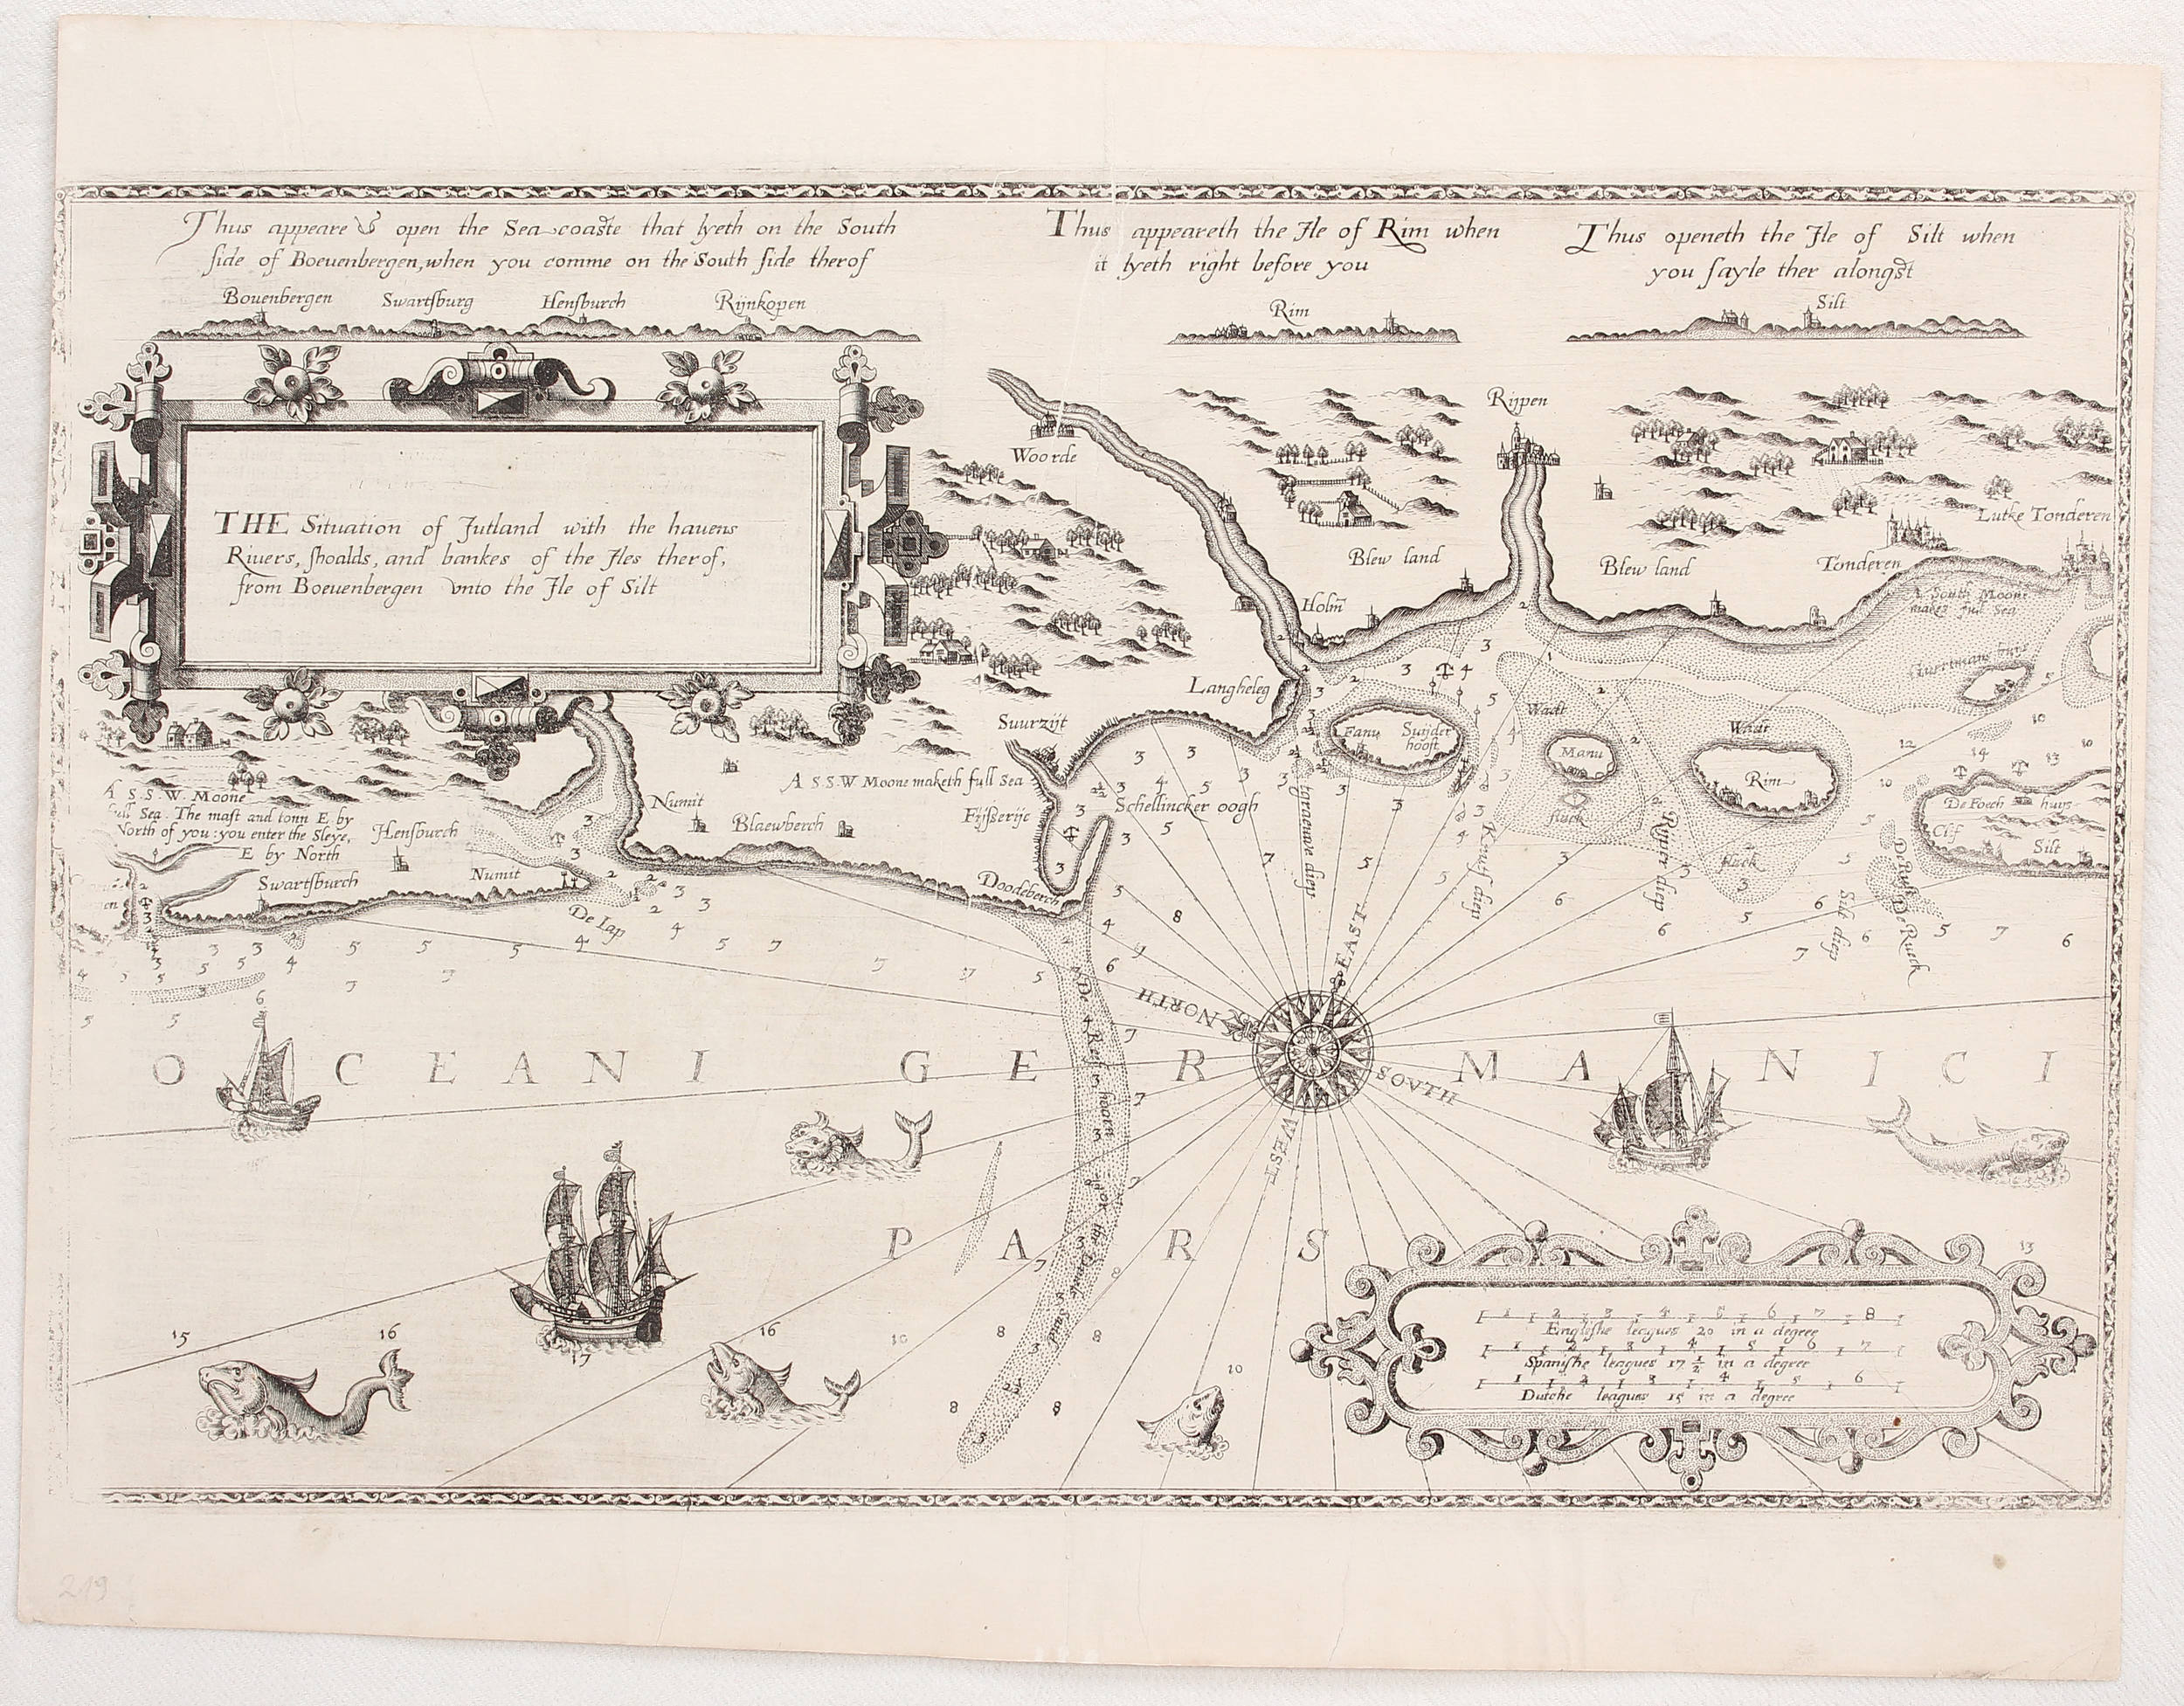 Thus appeare & open the Sea coaste that lyeth on the South
side of Boeuenbergen, when you comme on the South side therof
Bouenbergen Swartsburg Hensburch Rijnkopen
Thus appeareth the Ile of Rim when
it lyeth right before you
Rim
Thus openeth the Ile of Silt when
you sayle ther alongst
Silt
THE Situation of Jutland with the hauens
Riuers, shoalds, and bankes of the Iles therof,
from Boeuenbergen vnto the Ile of Silt
Woorde
Rijpen
Lutke Tonderen
Blew land
Blew land
Tonderen
Holm
A South Moone
makes ful Sea
Langheleg
Suurzijt
Fanu Suijder
hooft
Wadt
Manu
fluck
Wadt
Rim
fluck
A S.S.W. Moone maketh full Sea
Schellincker oogh
Fijsserije
A S.S.W. Moone
full Sea. The mast and tonn E by
North of you: you enter the Sleye,
E by North
Hensburch
Numit
Blaewberch
Swartsburch
Numit
De Lap
Doodeberch
De Foech huys
Silt
graeuwe diep
Knuts diep
Rijper diep
Silt diep
De Rueck
EAST
NORTH
SOVTH
WEST
De Reef hoorn
OCEANI GERMANICI
PARS
1 2 3 4 5 6 7 8
Englishe leagues 20 in a degree
1 2 3 4 5 6 7
Spanishe leagues 17 1/2 in a degree
1 2 3 4 5 6
Dutche leagues 15 in a degree
15
16
17
16
10
8
8
8
8
10
13
3
219